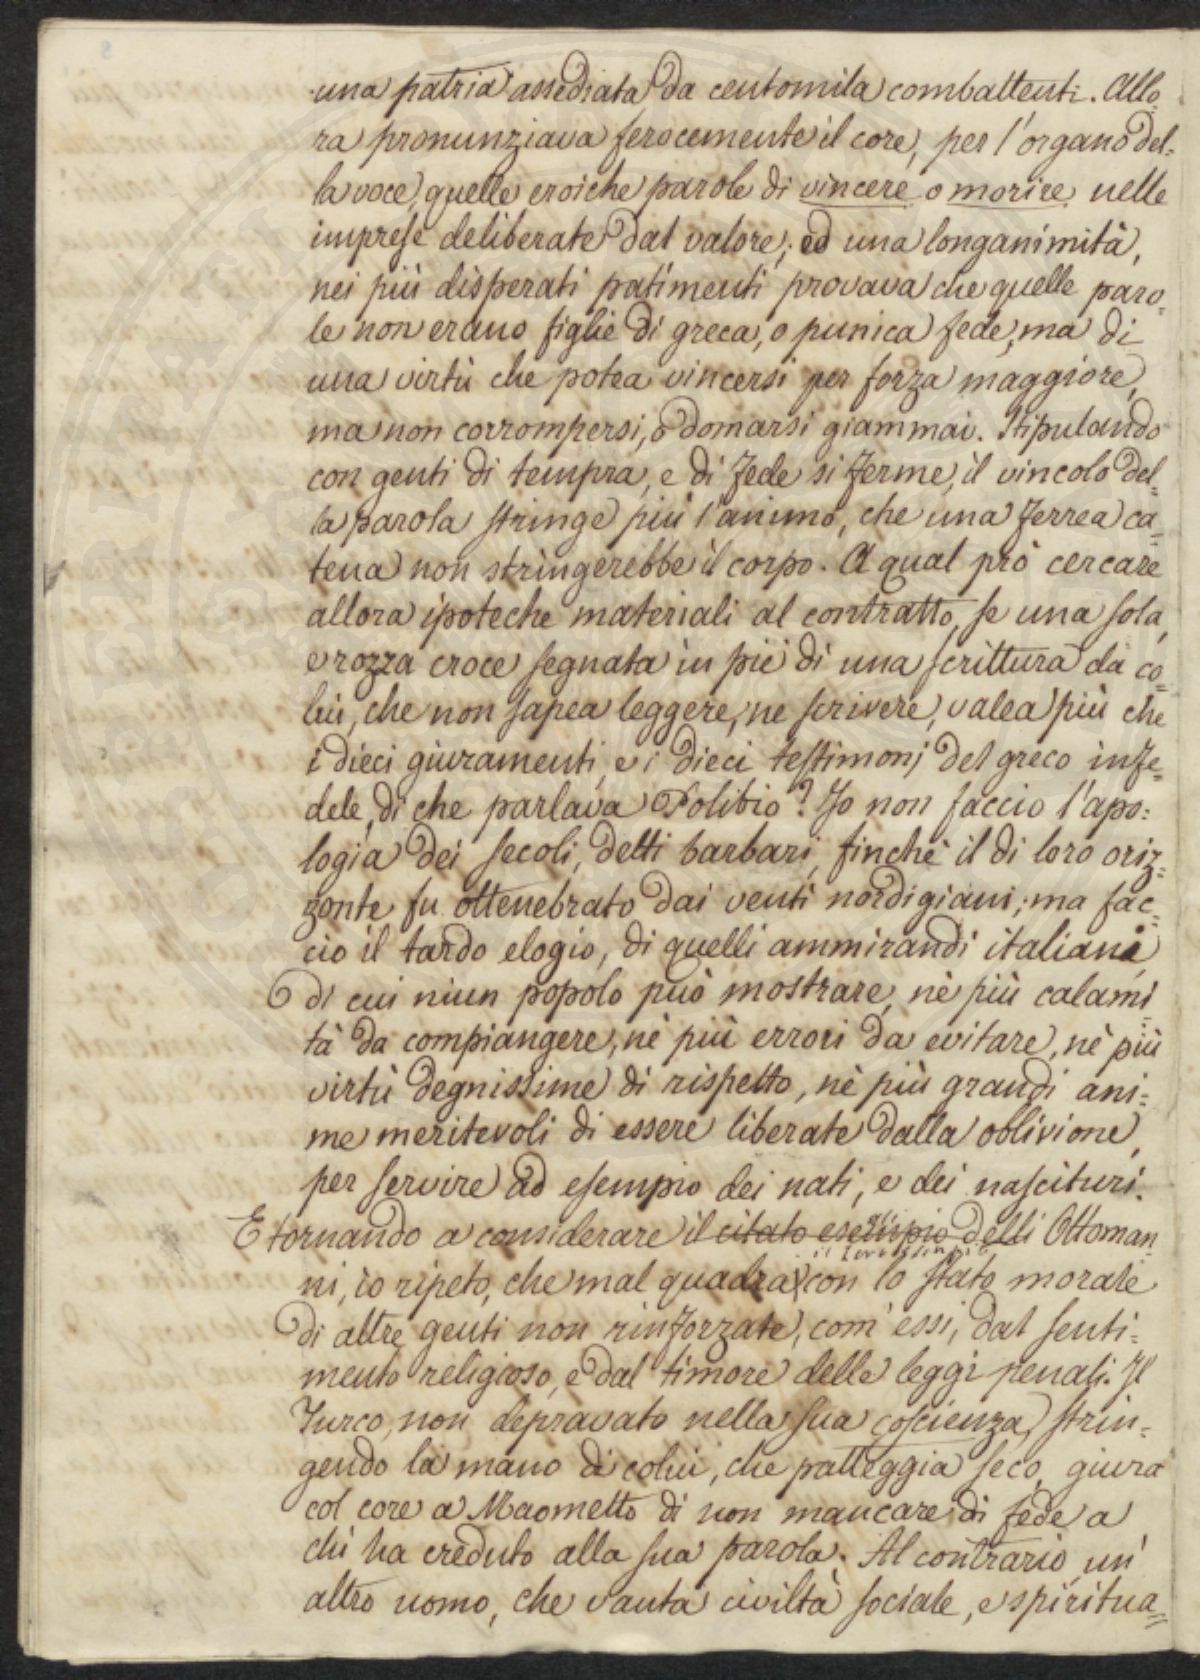 una patria assediata da centomila combattenti. Allo
ra pronunziava ferocemente il core, per l'organo del=
la voce, quelle eroiche parole di vincere o morire nelle
imprese deliberate dal valore; ed una longanimità,
nei più disperati patimenti provava che quelle paro=
le non erano figlie di greca, o punica fede, ma di
una virtù che potea vincersi per forza maggiore,
ma non corrompersi, o domarsi giammai. Stipulando
con genti di tempra, e di fede si ferme, il vincolo del=
la parola stringe più l'animo, che una ferrea ca=
tena non stringerebbe il corpo. A qual prò cercare
allora ipoteche materiali al contratto, se una sola,
e rozza croce segnata in piè di una scrittura da co=
lui, che non sapea leggere, ne scrivere, valea più che
i dieci giuramenti, e i dieci testimonj del greco infe=
dele, di che parlava Polibio? Io non faccio l'apo=
logia dei secoli, detti barbari, finchè il di loro oriz=
zonte fu ottenebrato dai venti nordigiani; ma fac=
cio il tardo elogio, di quelli ammirandi italiani,
di cui niun popolo può mostrare, nè più calami
tà da compiangere, nè più errori da evitare, nè più
virtù degnissime di rispetto, nè più grandi ani=
me meritevoli di essere liberate dalla oblivione,
per servire ad esempio dei nati, e dei nascituri.
E tornando a considerare il citato esempio delli Ottoman=
ni, io ripeto, che mal quadra con lo stato morale
di altre genti non rinforzate, com'essi, dal senti=
mento religioso, e dal timore delle leggi penali. Il
Turco, non depravato nella sua coscienza, strin=
gendo la mano di colui, che patteggia seco, giura
col core a Maometto di non mancare di fede a
chi ha creduto alla sua parola. Al contrario, un'
altro uomo, che vanta civiltà sociale, e spiritua=